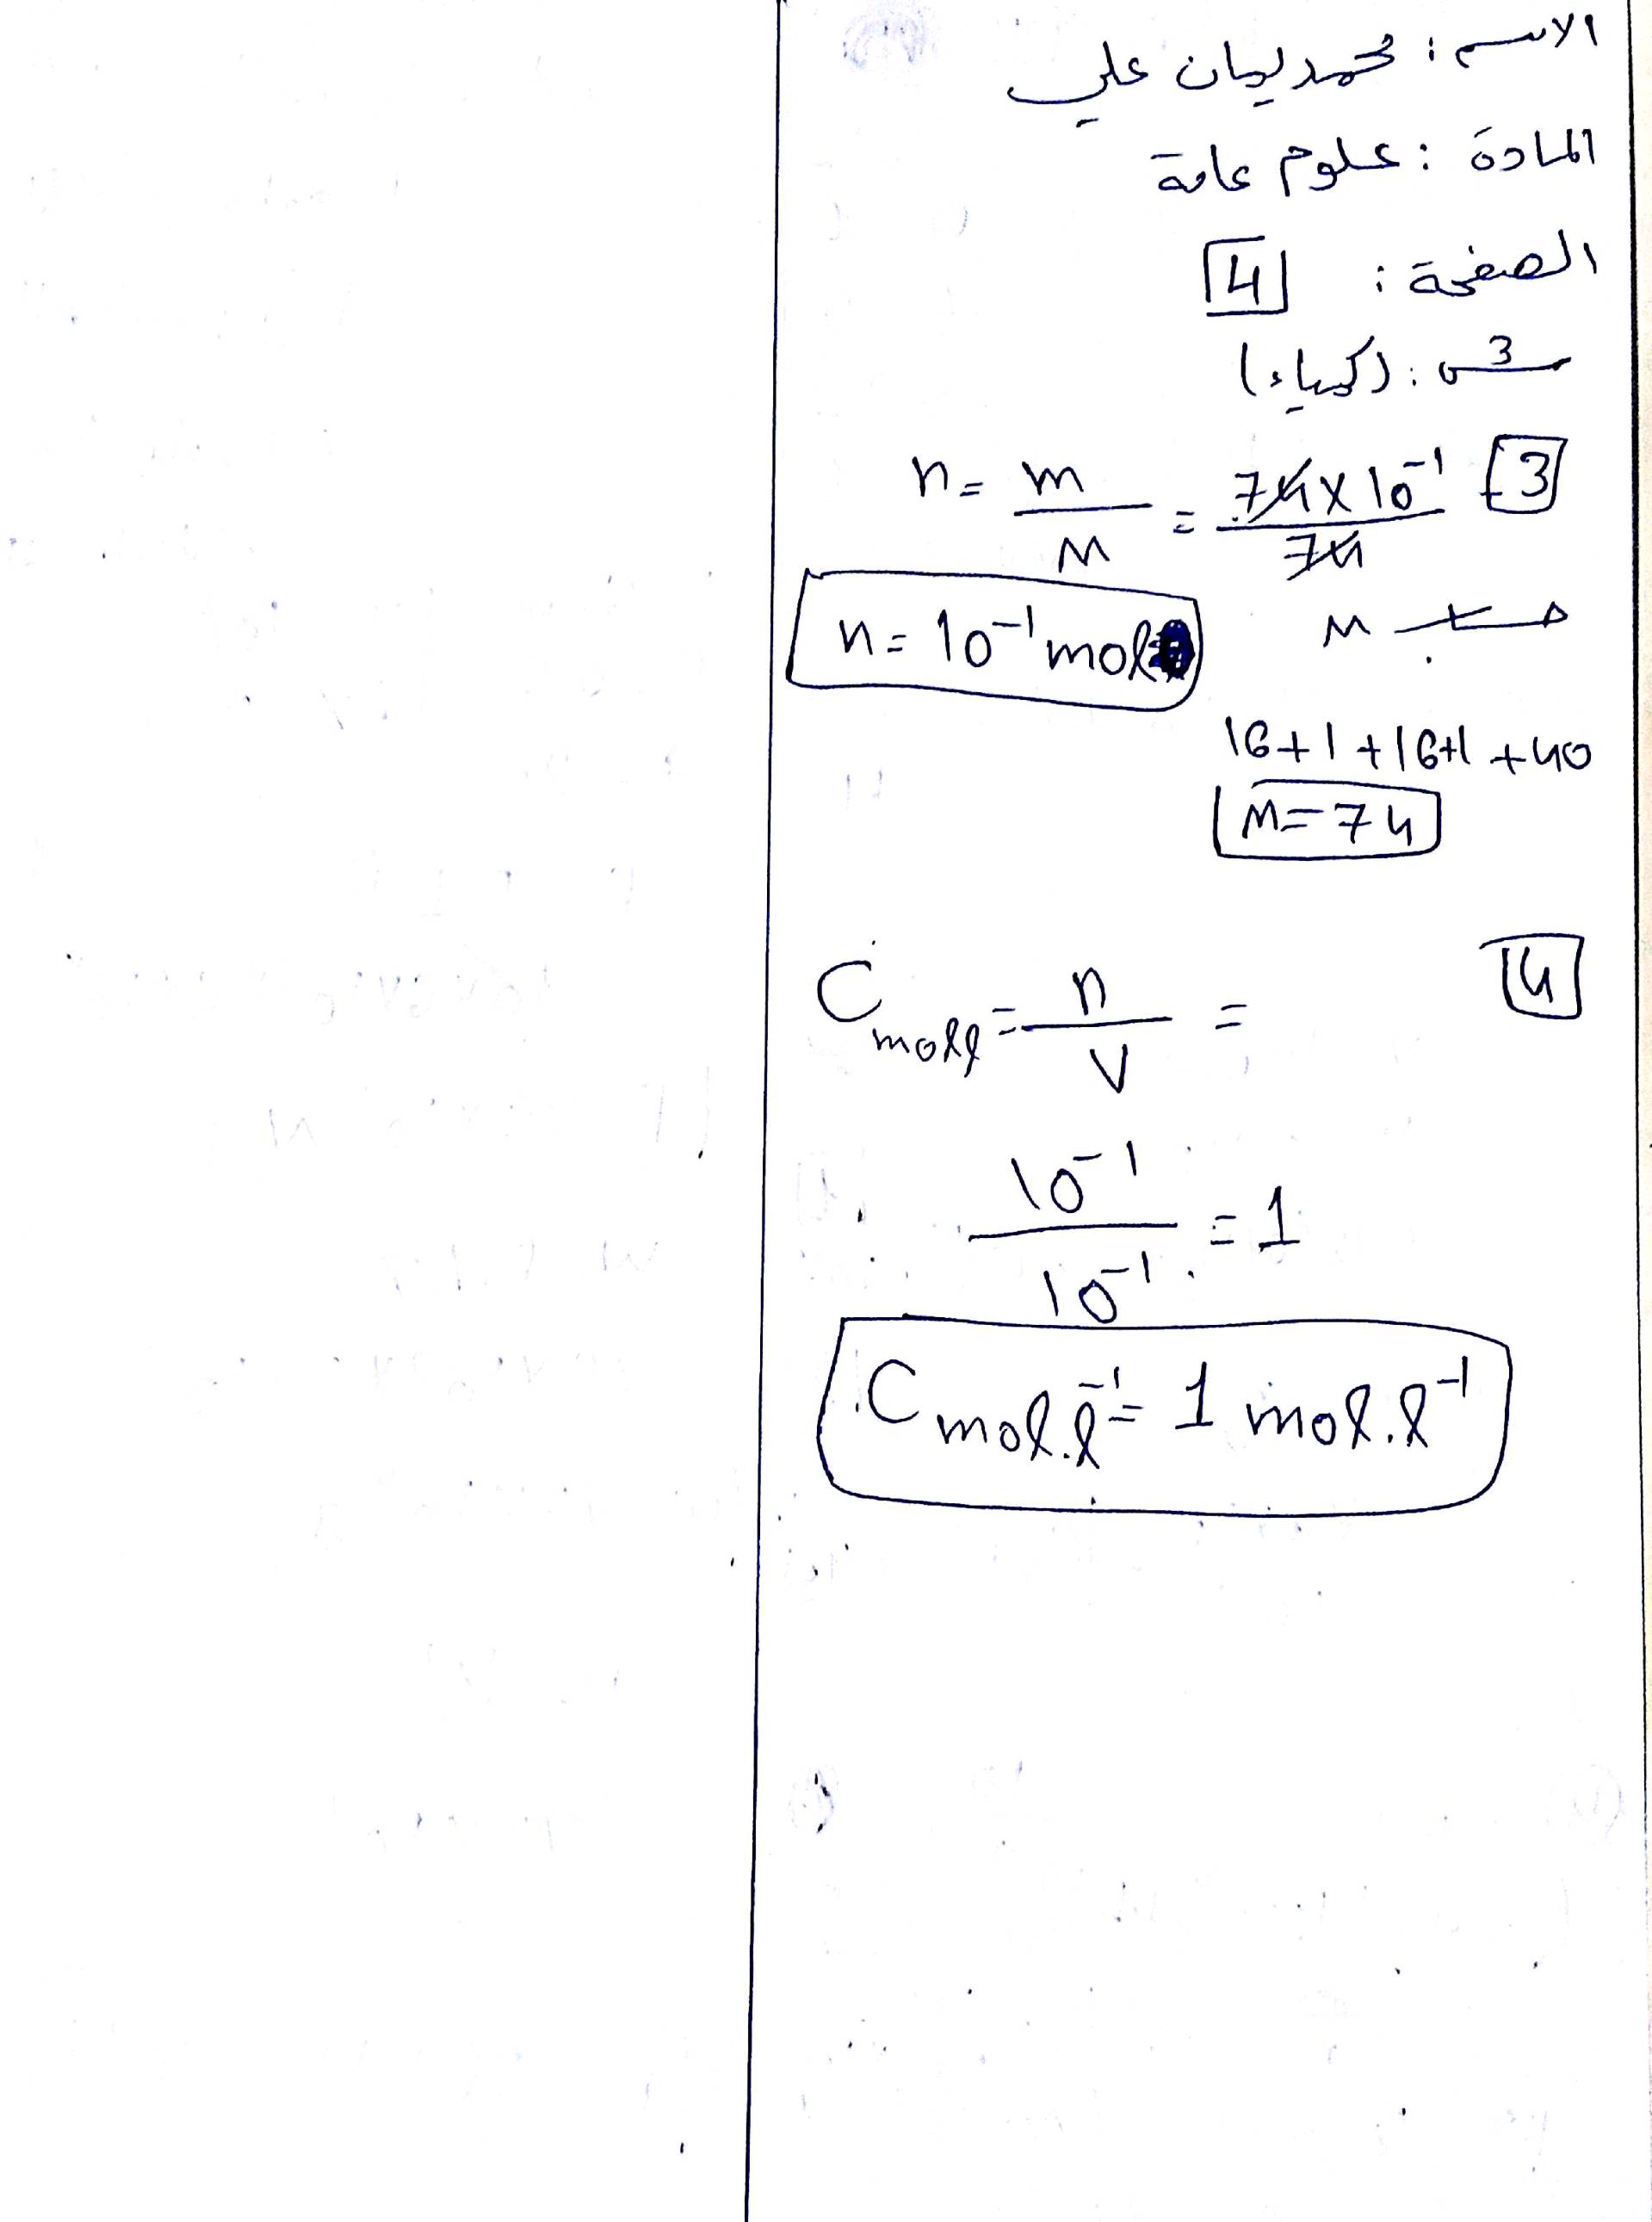 الاسم: محمد ليان علي
المادة: علوم عامة
الصفحة: 4
س3: (كيمياء)
3 n = m/M = 74×10⁻¹/74
حساب M
n = 10⁻¹ mol
16+1+16+1+40
M = 74
4 C mol.l = n/V =
10⁻¹/10⁻¹ = 1
C mol.l⁻¹ = 1 mol.l⁻¹